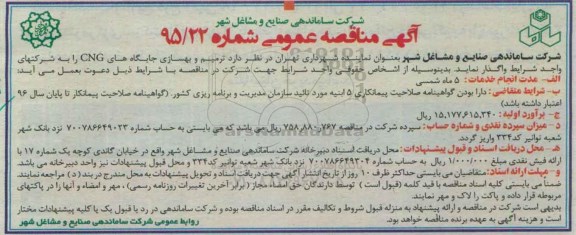 شرکت ساماندهی صنایع و مشاغل شهر
آگهی مناقصه عمومی شماره ۹۵/۲۲
شرکت ساماندهی صنایع و مشاغل شهر بعنوان نماینده شهرداری تهران در نظر دارد ترمیم و بهسازی جایگاه های CNG را به شرکتهای
واجد شرایط واگذار نماید. بدینوسیله از اشخاص حقوقی واجد شرایط جهت شرکت در مناقصه با شرایط ذیل دعوت بعمل می آید:
الف- مدت انجام خدمات: ۵ ماه شمسی
ب- شرایط متقاضی: دارا بودن گواهینامه صلاحیت پیمانکاری ۵ ابنیه مورد تائید سازمان مدیریت و برنامه ریزی کشور. (گواهینامه صلاحیت پیمانکار تا پایان سال ۹۶
اعتبار داشته باشد)
ج- برآورد اولیه: ۱۵,۱۷۷,۶۱۵,۳۴۰ ریال
د- میزان سپرده نقدی و شماره حساب: سپرده شرکت در مناقصه ۷۵۸,۸۸۰,۷۶۷ ریال می باشد که می بایستی به حساب شماره ۷۰۰۷۸۶۶۴۹۰۲۳ نزد بانک شهر
شعبه توانیر کد۳۳۴ واریز گردد.
ه- محل دریافت اسناد و قبول پیشنهادات: محل دریافت اسناد دبیرخانه شرکت ساماندهی صنایع و مشاغل شهر واقع در خیابان گاندی کوچه یک شماره ۱۷ با
ارائه فیش نقدی مبلغ ۱/۰۰۰/۰۰۰ ریال به حساب شماره ۷۰۰۷۸۶۶۴۹۳۰۴ نزد بانک شهر شعبه توانیر کد۳۳۴ و محل قبول پیشنهادات نیز واحد دبیرخانه می باشد.
و- مهلت ارائه اسناد: متقاضیان می بایستی حداکثر ظرف ۱۰ روز از تاریخ انتشار آگهی جهت دریافت اسناد و تحویل پیشنهادات به محل مندرج در بند (ه) مراجعه نمایند.
ضمناً می بایستی کلیه اسناد مناقصه با قید کلمه (قبول است) توسط دارندگان حق امضاء مجاز (برابر آخرین تغییرات روزنامه رسمی)، مهر و امضاء و آنها را در پاکتهای
مربوطه قرار داده و پاکت را لاک و مهر نمایند.
بدیهی است شرکت در مناقصه و ارائه پیشنهاد به منزله قبول شروط و تکالیف مقرر در اسناد مناقصه بوده و شرکت ساماندهی در رد یا قبول یک یا کلیه پیشنهادات مختار
است و هزینه آگهی به عهده برنده مناقصه خواهد بود.
روابط عمومی شرکت ساماندهی صنایع و مشاغل شهر